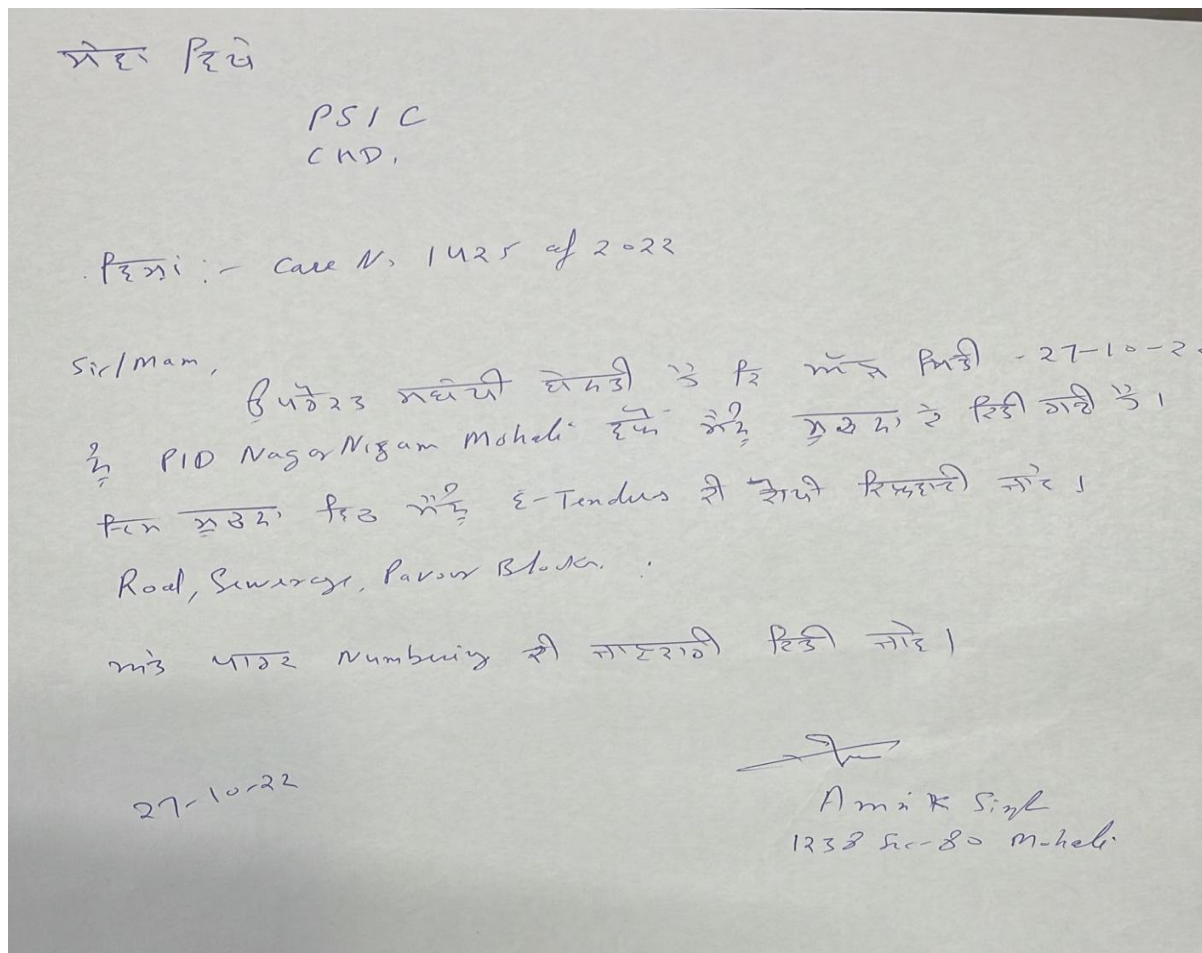 ਸੇਵਾ ਵਿਖੇ
PSIC
CHD.
ਵਿਸ਼ਾ :- Case No 1425 of 2022
Sir/Mam,
ਉਪਰੋਕਤ ਸਬੰਧੀ ਬੇਨਤੀ ਹੈ ਕਿ ਅੱਜ ਮਿਤੀ - 27-10-22
ਨੂੰ PIO Nagar Nigam Mohali ਵੱਲੋਂ ਮੈਨੂੰ ਸੂਚਨਾ ਦੇ ਦਿਤੀ ਗਈ ਹੈ।
ਇਸ ਸੂਚਨਾ ਵਿਚ ਮੈਨੂੰ E-Tenders ਦੀ ਕਾਪੀ ਦਿਲਵਾਈ ਜਾਵੇ।
Road, Sewerage, Pavour Blocks.
ਅਤੇ ਪਾਰਕ Numbering ਦੀ ਜਾਣਕਾਰੀ ਦਿਤੀ ਜਾਵੇ।
27-10-22
Amrik Singh
1238 Sec-80 Mohali